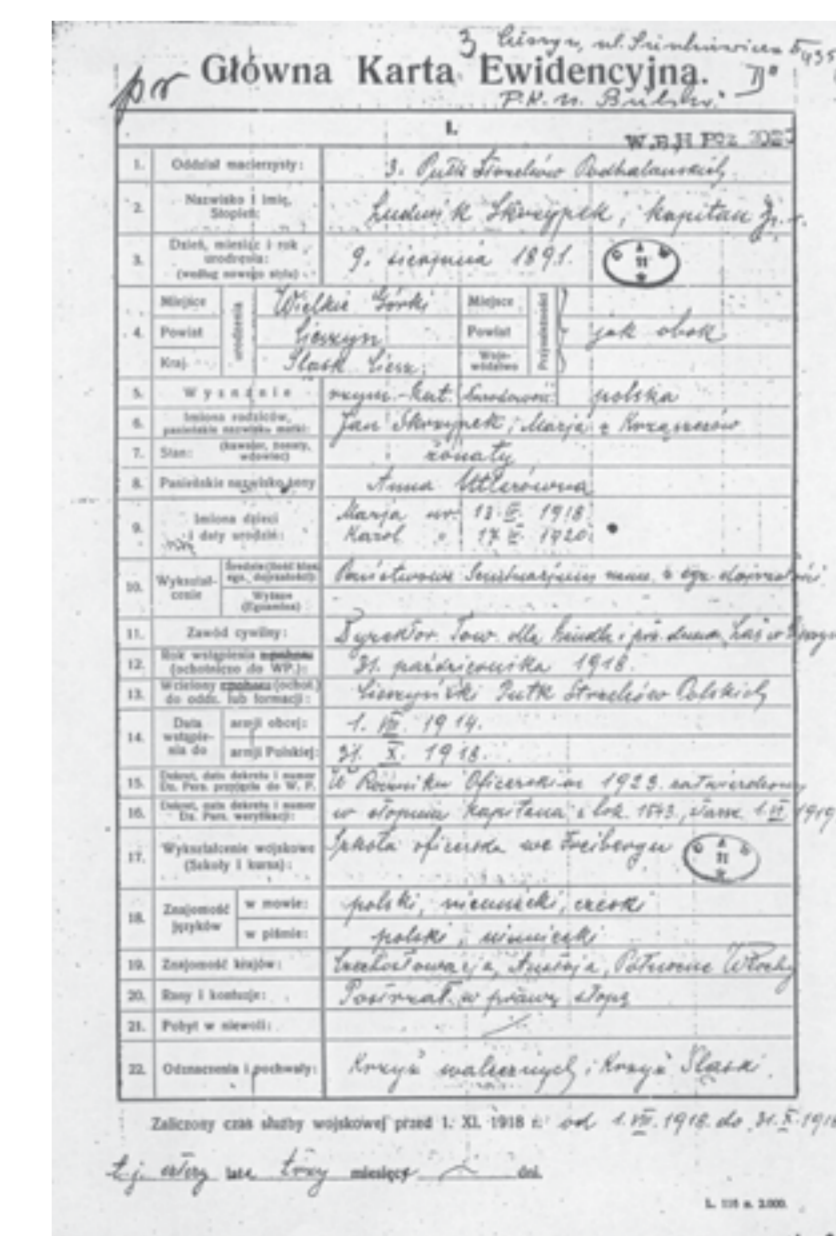 3 Cieszyn, ul. Sienkiewicza 5
pr Główna Karta Ewidencyjna.
P.K.U. Bielsko
I.
1. Oddział macierzysty: 3. Pułk Strzelców Podhalańskich
2. Nazwisko i imię, Stopień: Ludwik Skrzypek, kapitan
3. Dzień, miesiąc i rok urodzenia: (według nowego stylu) 9. sierpnia 1891.
4. Miejsce urodzenia Wielkie Górki Miejsce Przynależności jak obok
Powiat Cieszyn Powiat
Kraj Śląsk Ciesz. Województwo
5. Wyznanie rzym.-kat. Narodowość polska
6. Imiona rodziców, panieńskie nazwisko matki: Jan Skrzypek i Marja z
7. Stan: (kawaler, żonaty, wdowiec) żonaty
8. Panieńskie nazwisko żony Anna
9. Imiona dzieci i daty urodzin: Marja ur. 1918
Karol " 1920
10. Wykształcenie Średnie (ilość klas, egz. dojrzałości): Państwowe Seminarjum naucz. z egz. dojrzałości
Wyższe (Egzamina)
11. Zawód cywilny: Dyrektor Tow. dla handlu i
12. Rok wstąpienia (ochotniczo do WP.): 31. października 1918.
13. Wcielony (ochot.) do oddz. lub formacji: Cieszyński Pułk Strzelców Polskich
14. Data wstąpienia do armji obcej: 1. VIII. 1914.
armji Polskiej: 31. X. 1918.
15. Dekret, data dekretu i numer Dz. Pers. przyjęcia do W. P. W Roczniku Oficerskim 1923. zatwierdzony
16. Dekret, data dekretu i numer Dz. Pers. weryfikacji: w stopniu kapitana z lok. 1543, starsz. 1.VI 1919
17. Wykształcenie wojskowe (Szkoły i kursa): Szkoła oficerska we Freibergu
18. Znajomość języków w mowie: polski, niemiecki, czeski
w piśmie: polski, niemiecki
19. Znajomość krajów: Czechosłowacja, Austrja, Północne Włochy
20. Rany i kontuzje: Postrzał w prawą stopę
21. Pobyt w niewoli:
22. Odznaczenia i pochwały: Krzyż walecznych i Krzyż Śląski.
Zaliczony czas służby wojskowej przed 1. XI. 1918 r. od 1. VIII. 1918. do 31. X. 1918
t.j. cztery lata trzy miesięcy dni.